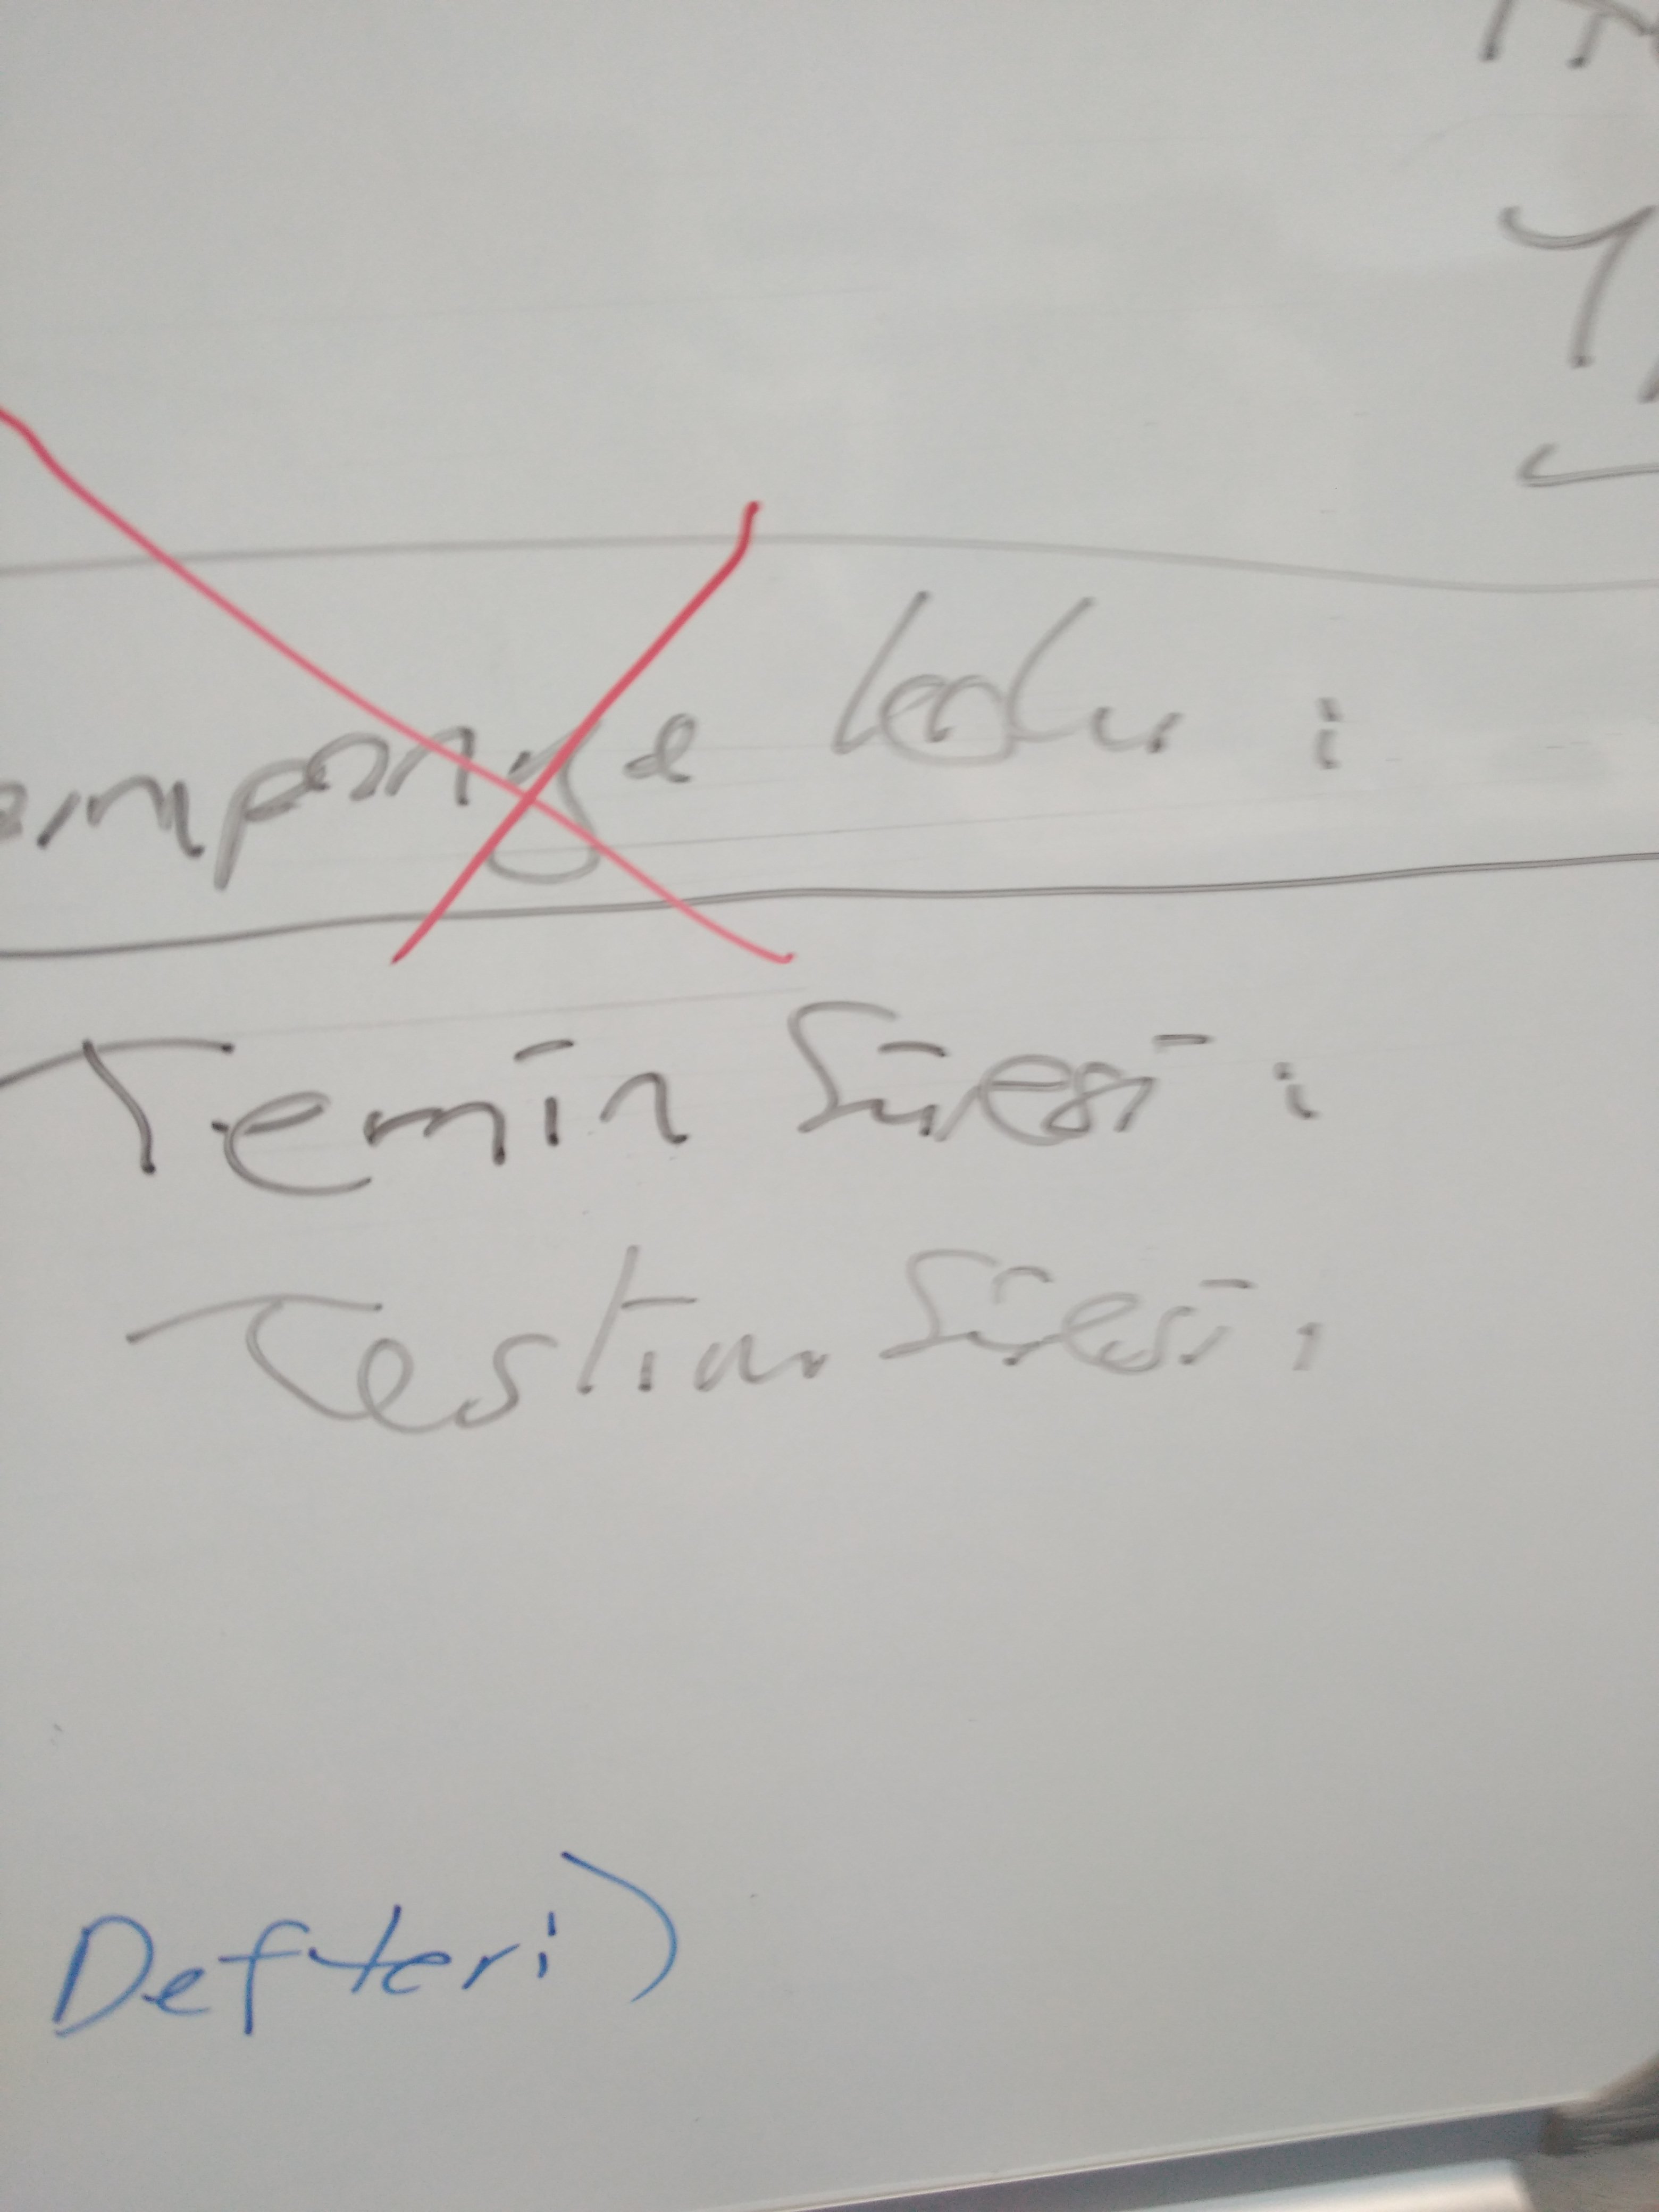 ampanya kodu :
Temin Süresi :
Teslim Süresi :
Defteri)